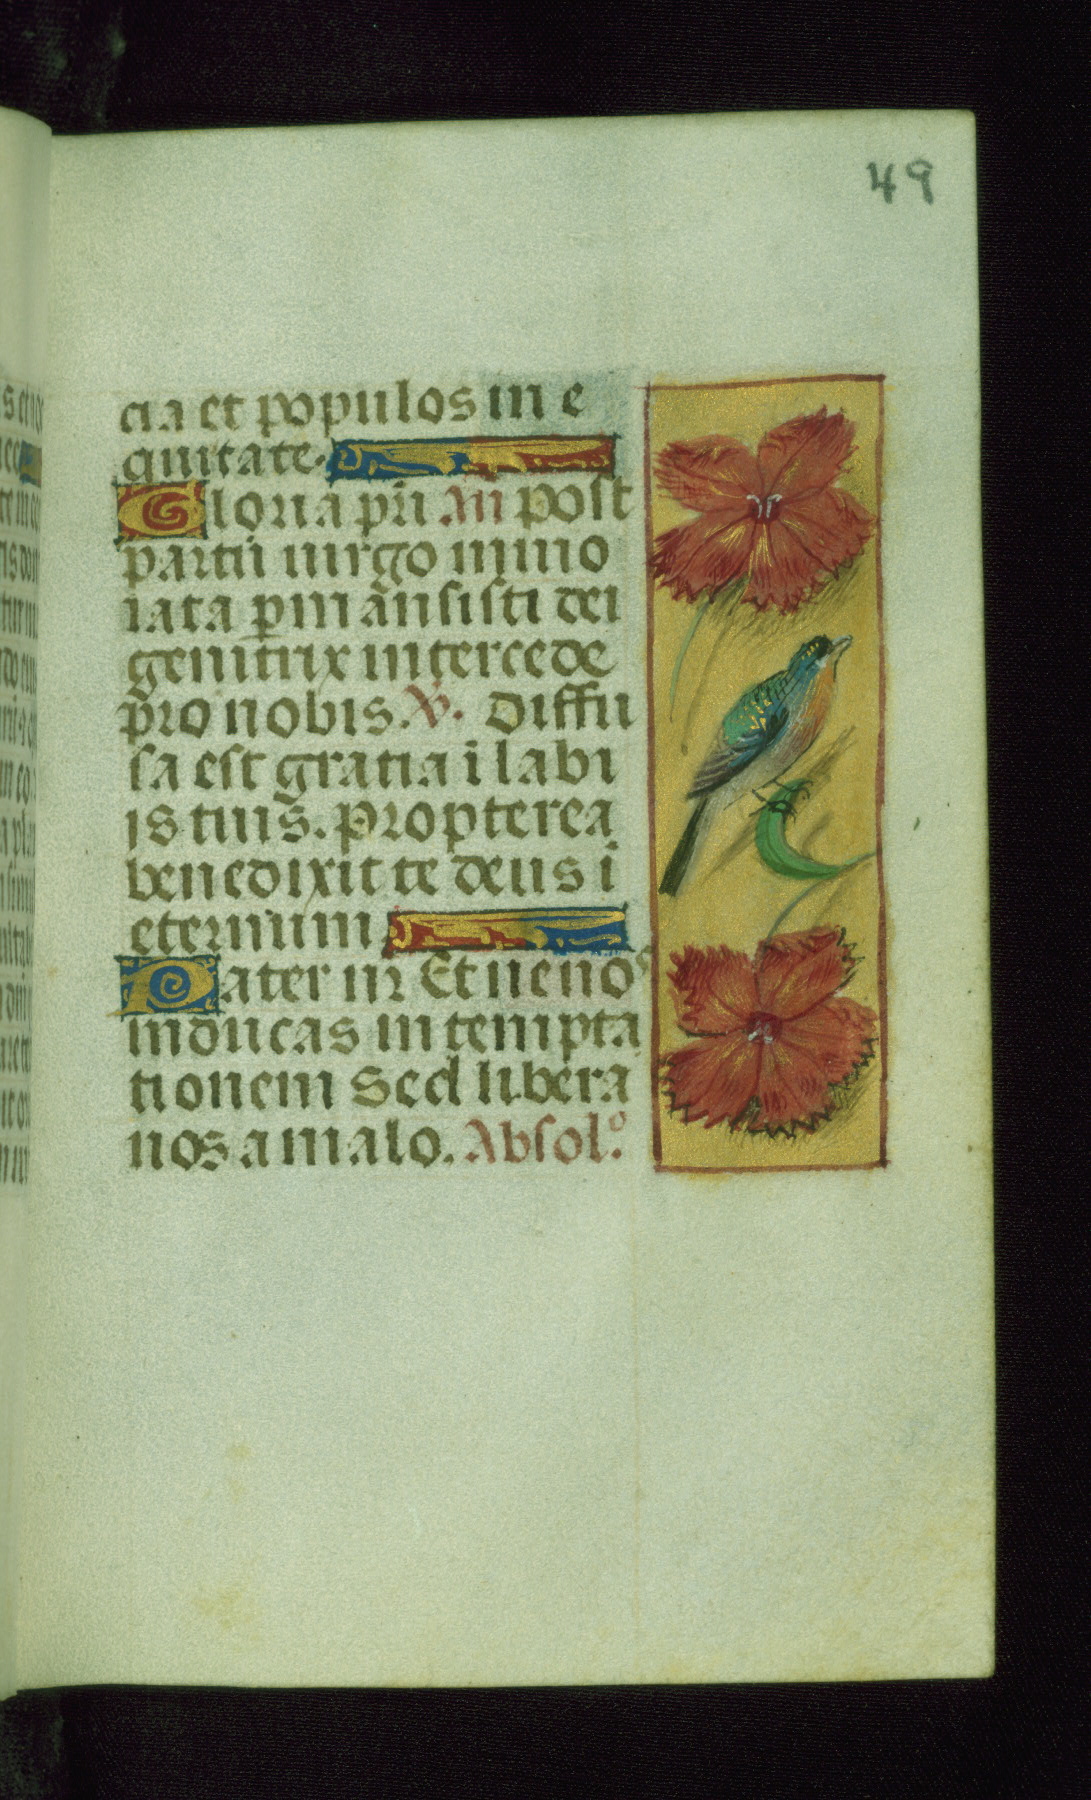 49
cia et populos in e
quitate.
Gloria pr̄i. Añ post
partū uirgo inuio
lata ꝑmānsisti dei
genitrix intercede
pro nobis. V̄. Diffu
sa est gratia ī labi
is tuis. Propterea
benedixit te deus ī
eternum
Pater nr̄ Et ne nos
inducas in tempta
tionem Sed libera
nos a malo. Absolº.